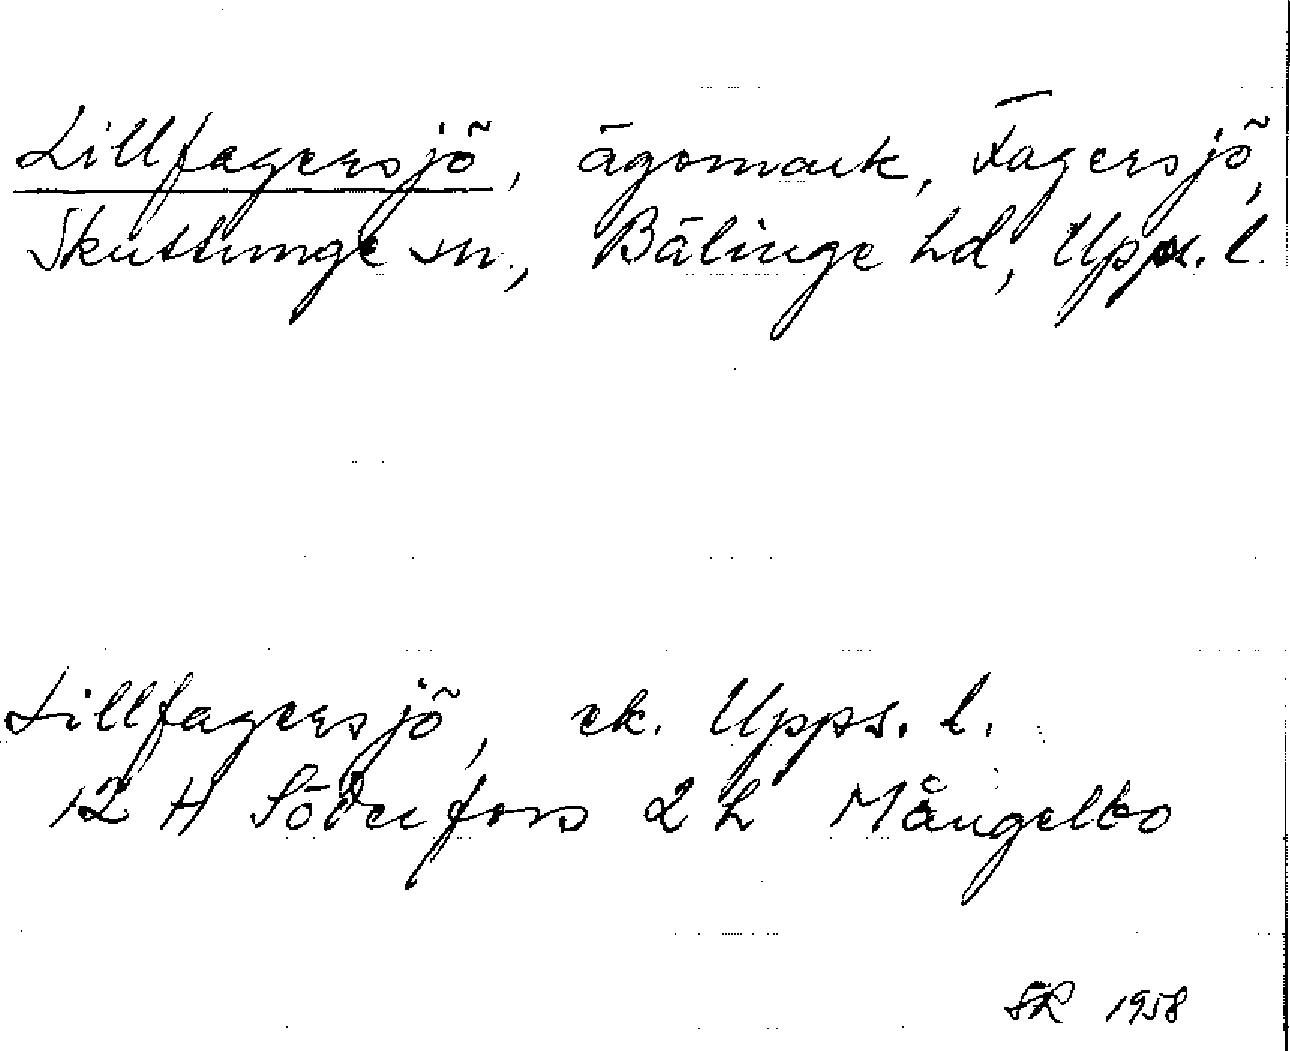 Lillfagersjö, ägomark, Fagersjö,
Skuttunge sn., Bälinge hd, Upps. l.
Lillfagersjö, ek. Upps. l.
12 H Söderfors 2 h Mångelbo
SR 1958